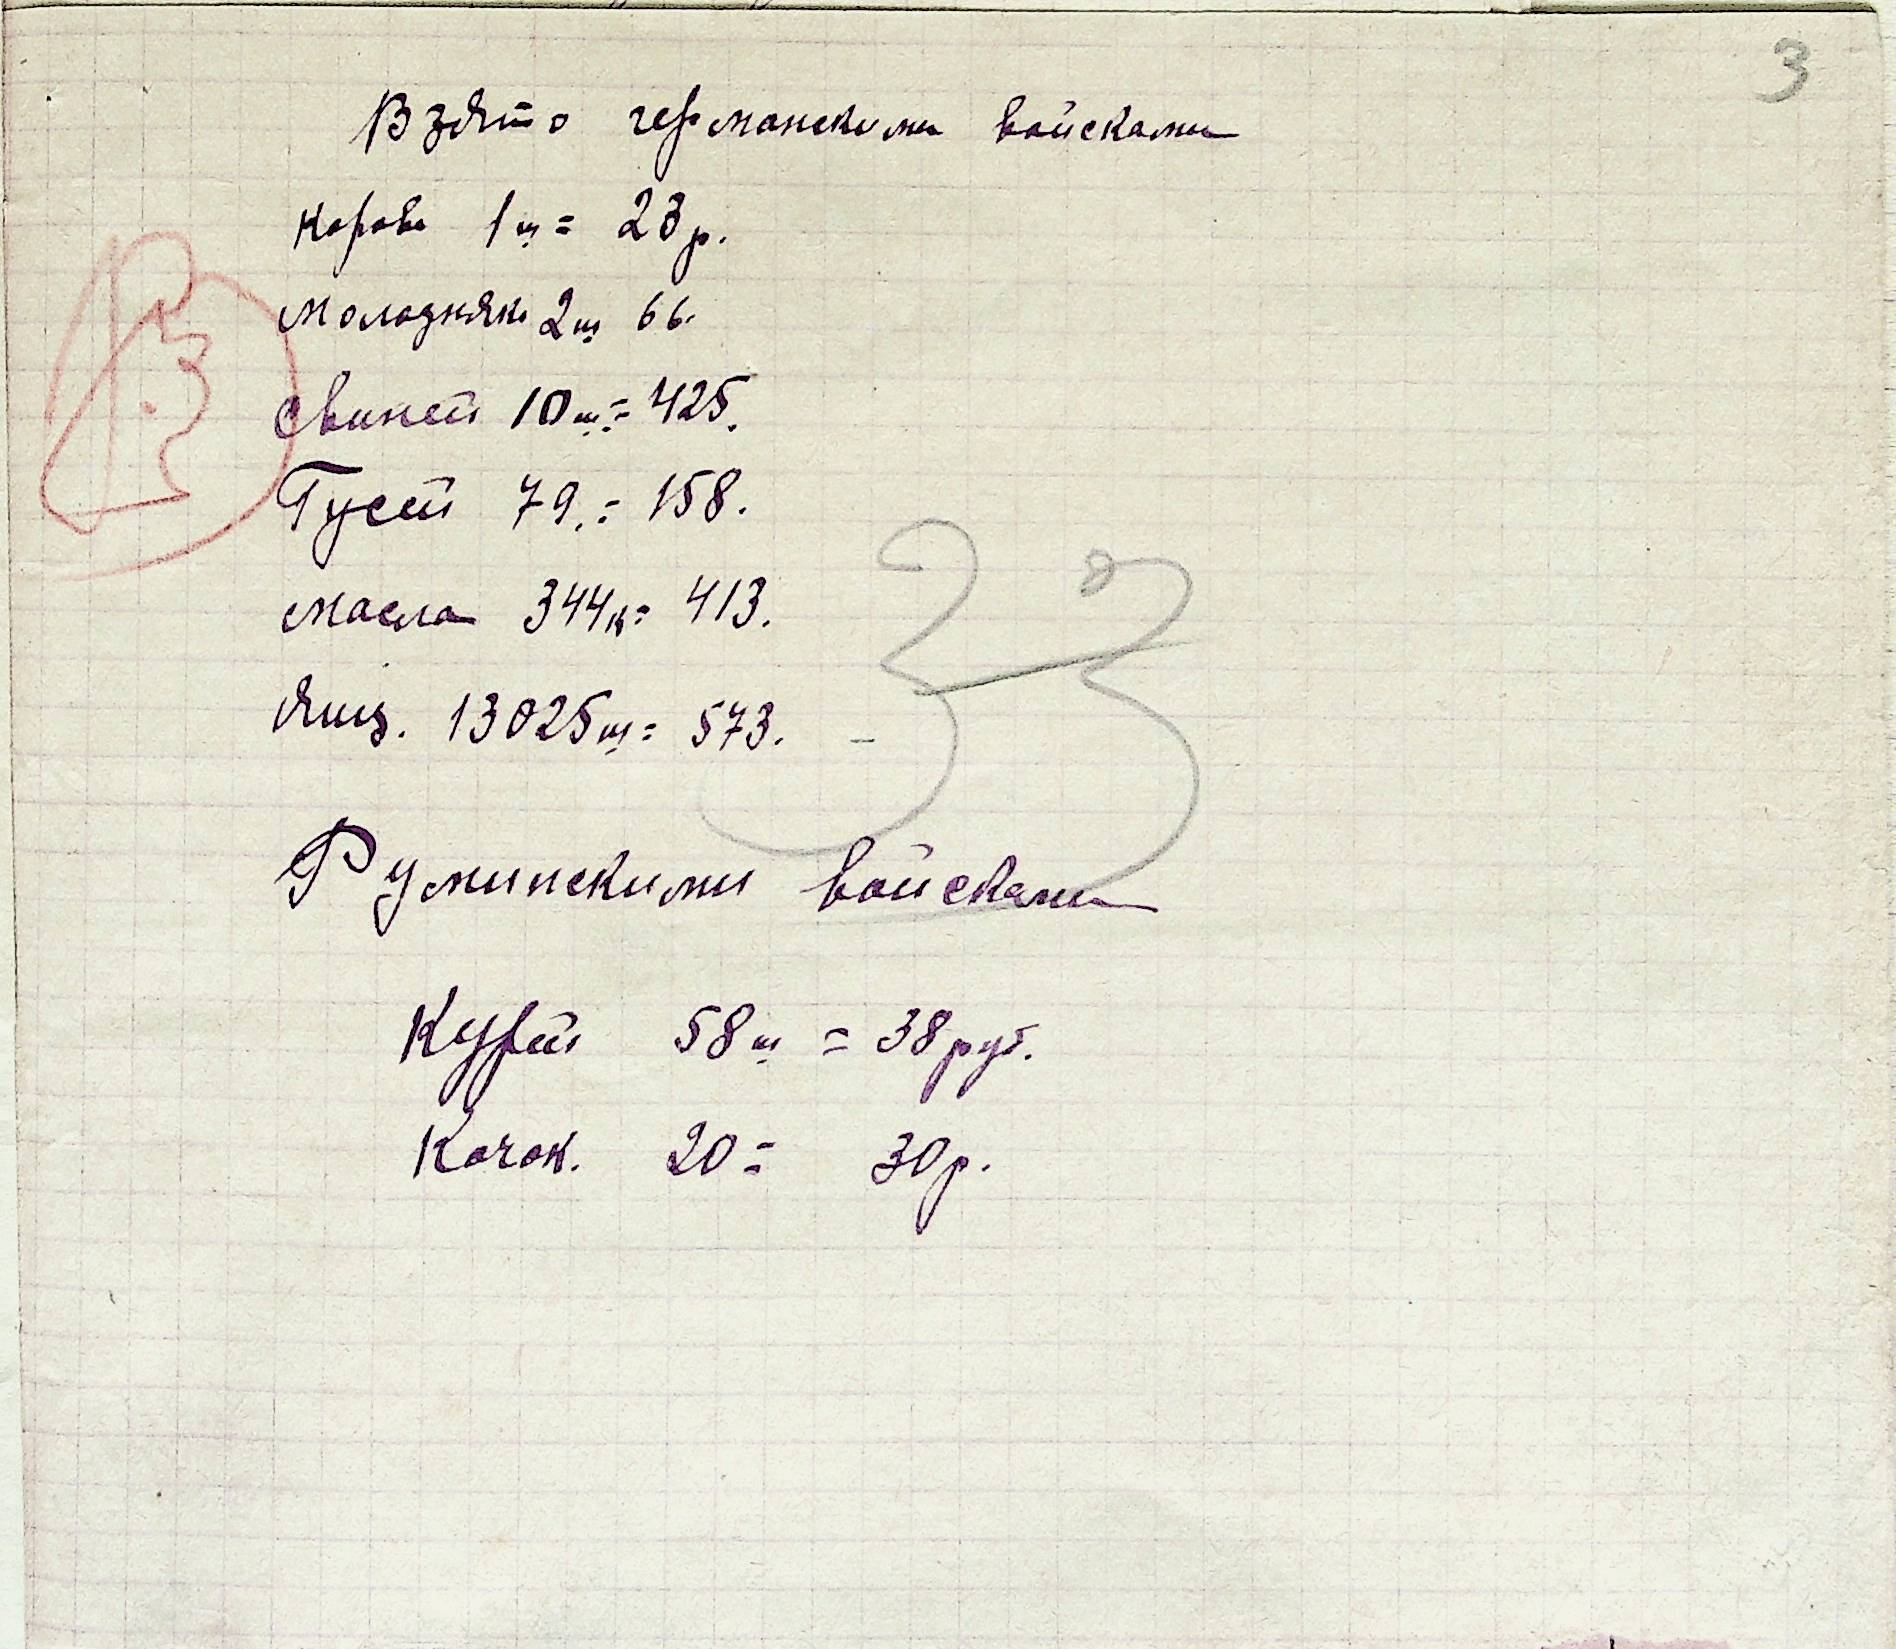 3
Взято германскими войсками
корова 1 ш = 23 р.
молодняк 2 ш 66.
свиней 10 ш. = 425.
Гусей 79. = 158.
масла 344 к = 413.
яиц. 13025 ш = 573. -
33
Руминскими войсками
Курей 58 ш = 38 руб.
Качок. 20 = 30 р.